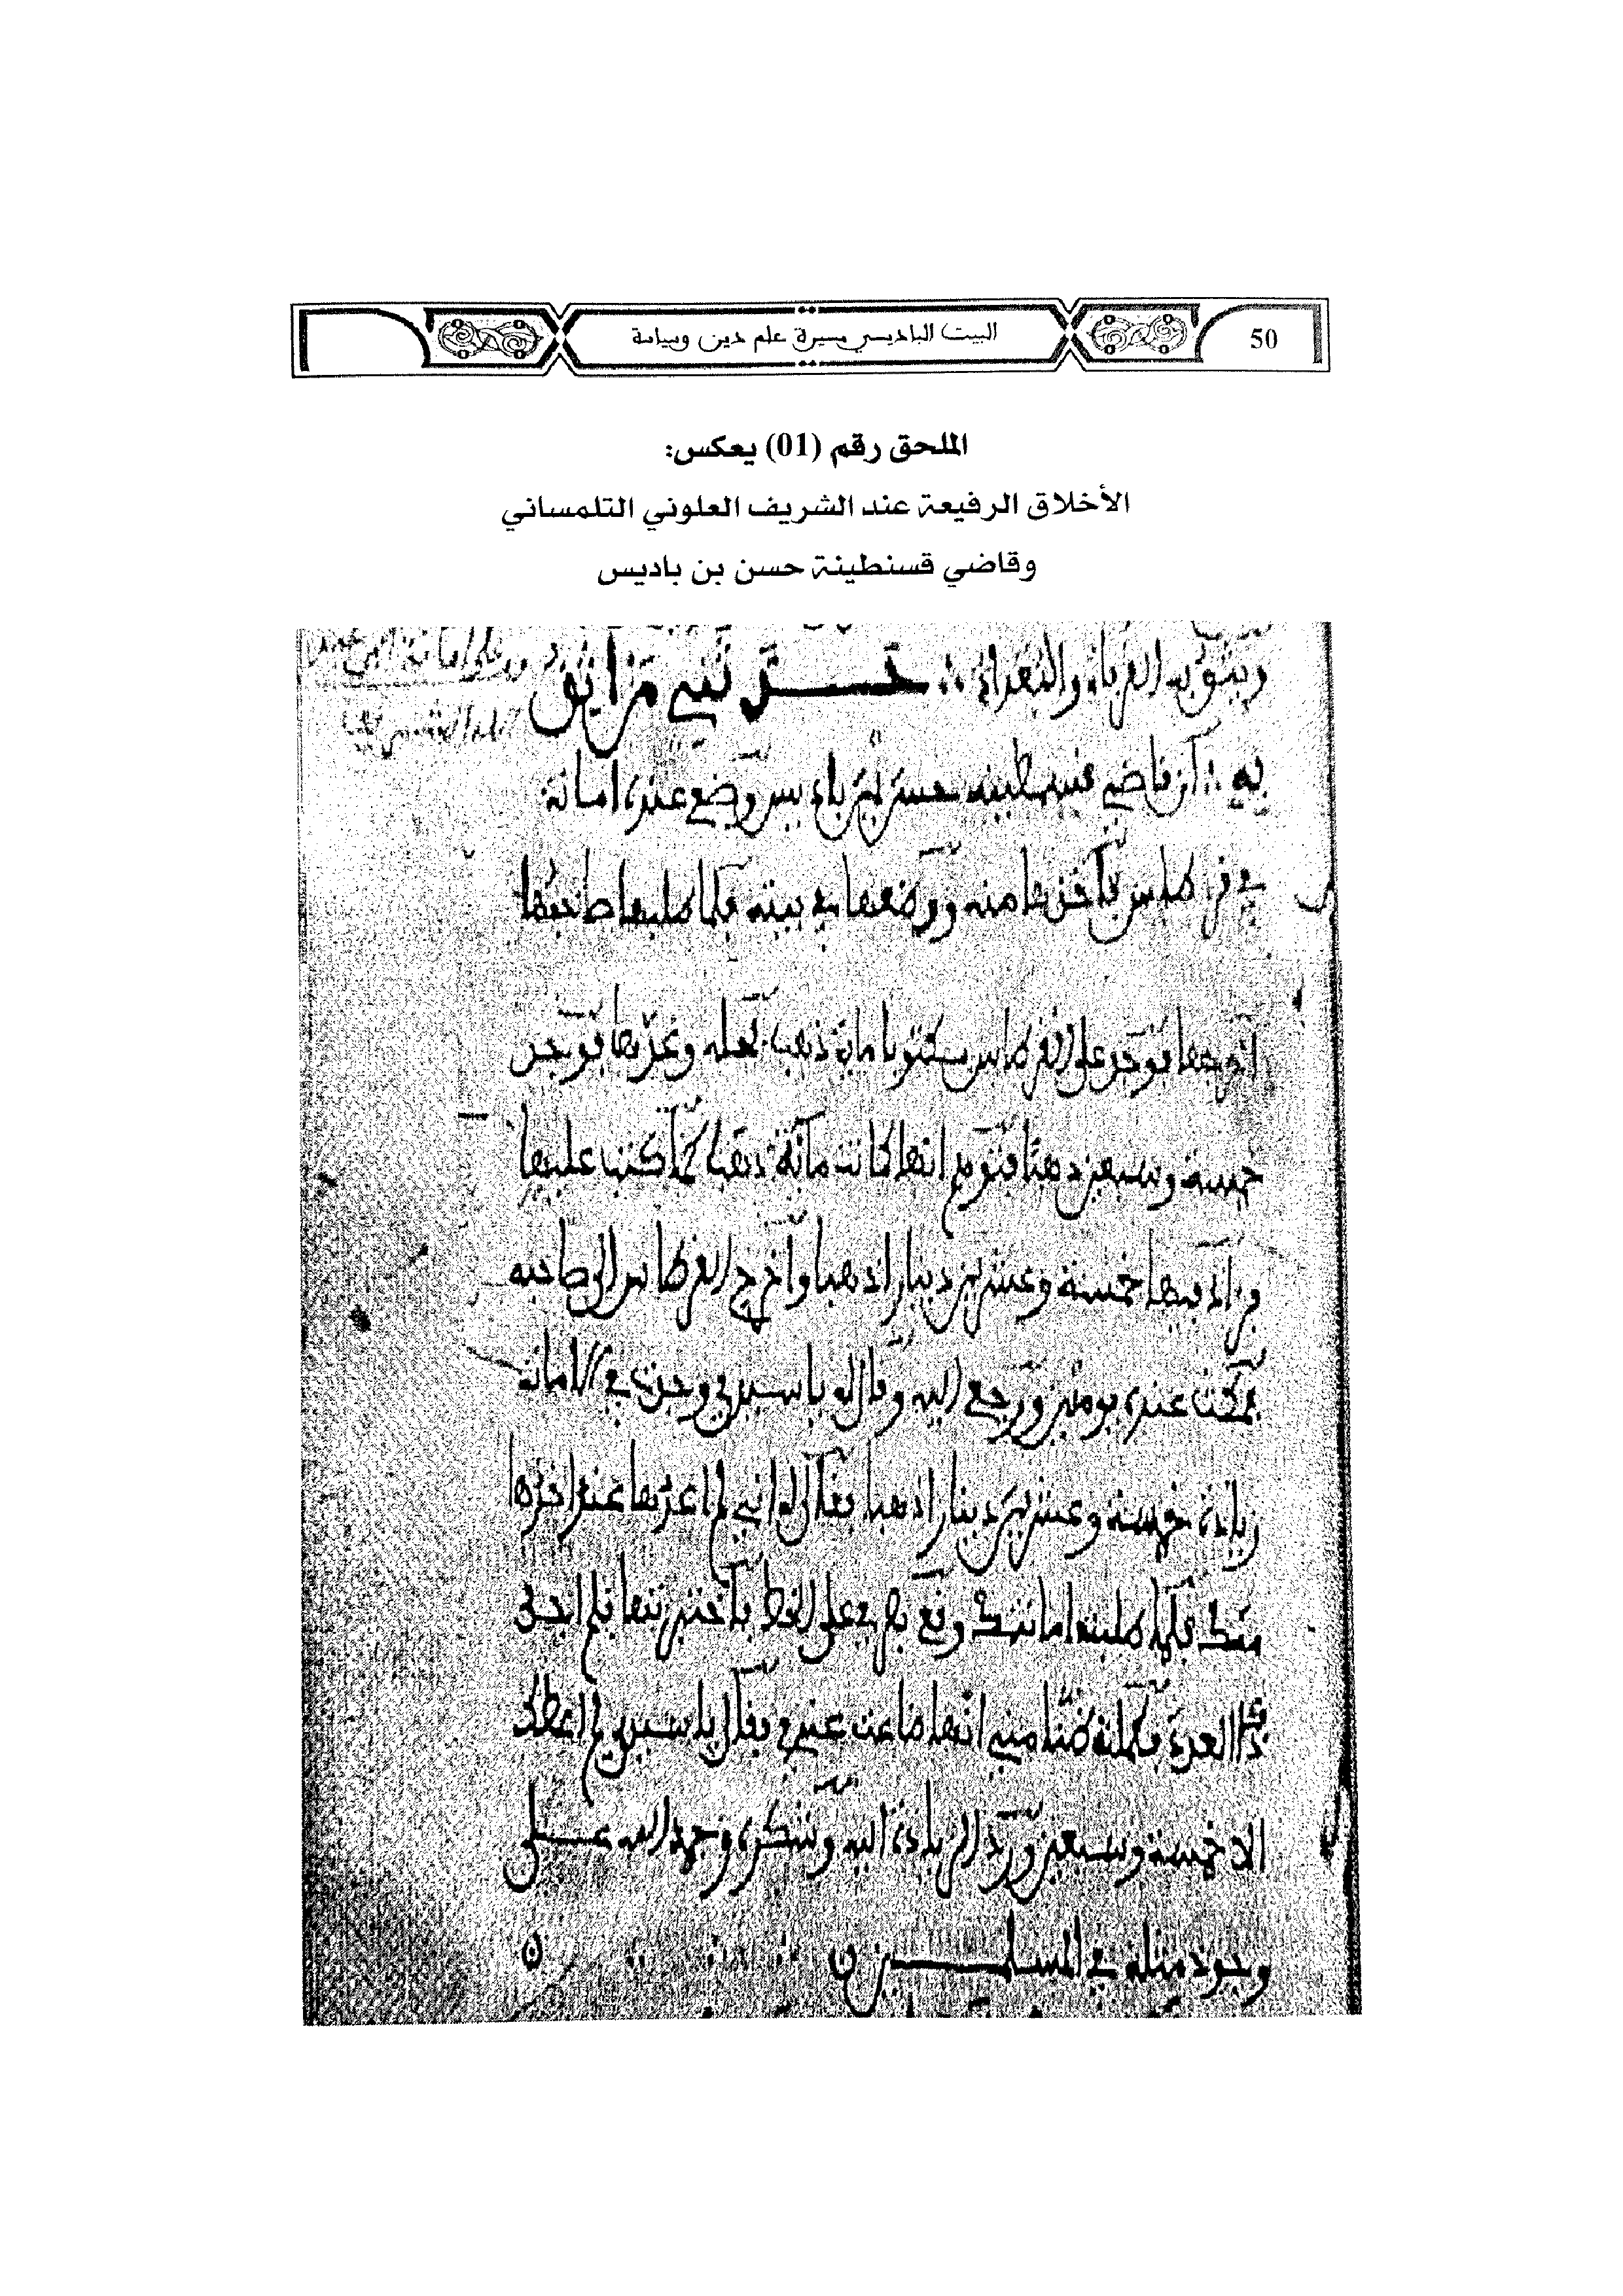 50
البيت الباديسي مسيرة علم دين وسياسة
الملحق رقم (01) يعكس:
الأخلاق الرفيعة عند الشريف العلوني التلمساني
وقاضي قسنطينة حسن بن باديس
الغرباء والفقراء حدثني من اثق
به ان قاضي قسنطينه حسن بن باديس وضع عنده امانة
في قرطاس فاخذها منه ووضعها في بيته فلما طلبها صاحبها
اخرجها فوجد على القرطاس مكتوبا مائة ذهب فحله وعدها فوجد
خمسة وسبعين ذهبا فتوهم انها كانت مائة ذهبا كما كتب عليها
فزاد فيها خمسة وعشرين دينارا ذهبا واخرج القرطاس الى صاحبه
فمكث عنده يومين ورجع اليه وقال له يا سيدي وجدت في الامانة
زيادة خمسة وعشرين دينارا ذهبا فقال له اني لم اعدها عند اخذها
منك فلما طلبت امانتك وقع بصري على الخط فاختبرتها فلم اجد
ذا العدد فكملته ظنا مني انها ضاعت عندي فقال يا سيدي لم اعطك
الا خمسة وسبعين ورد الزيادة اليه وشكره وحمد الله على
وجود مثله في المسلمين